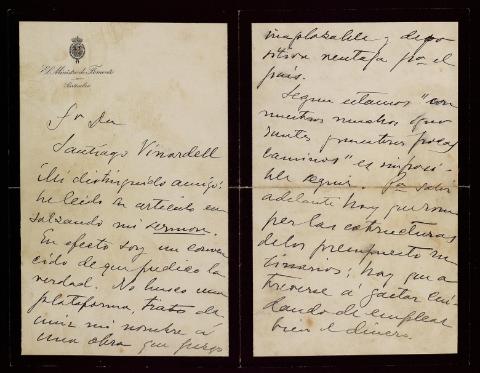 El Ministro de Fomento
Particular
Sr Dn
Santiago Vinardell
Mi distinguido amigo:
he leido su articulo en
salzando mi sermon.
En efecto soy un conven
cido de que predico la
verdad. No busco una
plataforma, trato de
unir mi nombre á
una obra que juzgo
inaplazable y de
por el
pais.
Seguir estamos "con
nuestros muchos
y nuestros pocos
caminos" es imposi
ble seguir. Pa salir
adelante hay que rom
per las estructuras
de los presupuestos or
dinarios; hay que a
treverse á gastar cui
dando de emplear
bien el dinero.